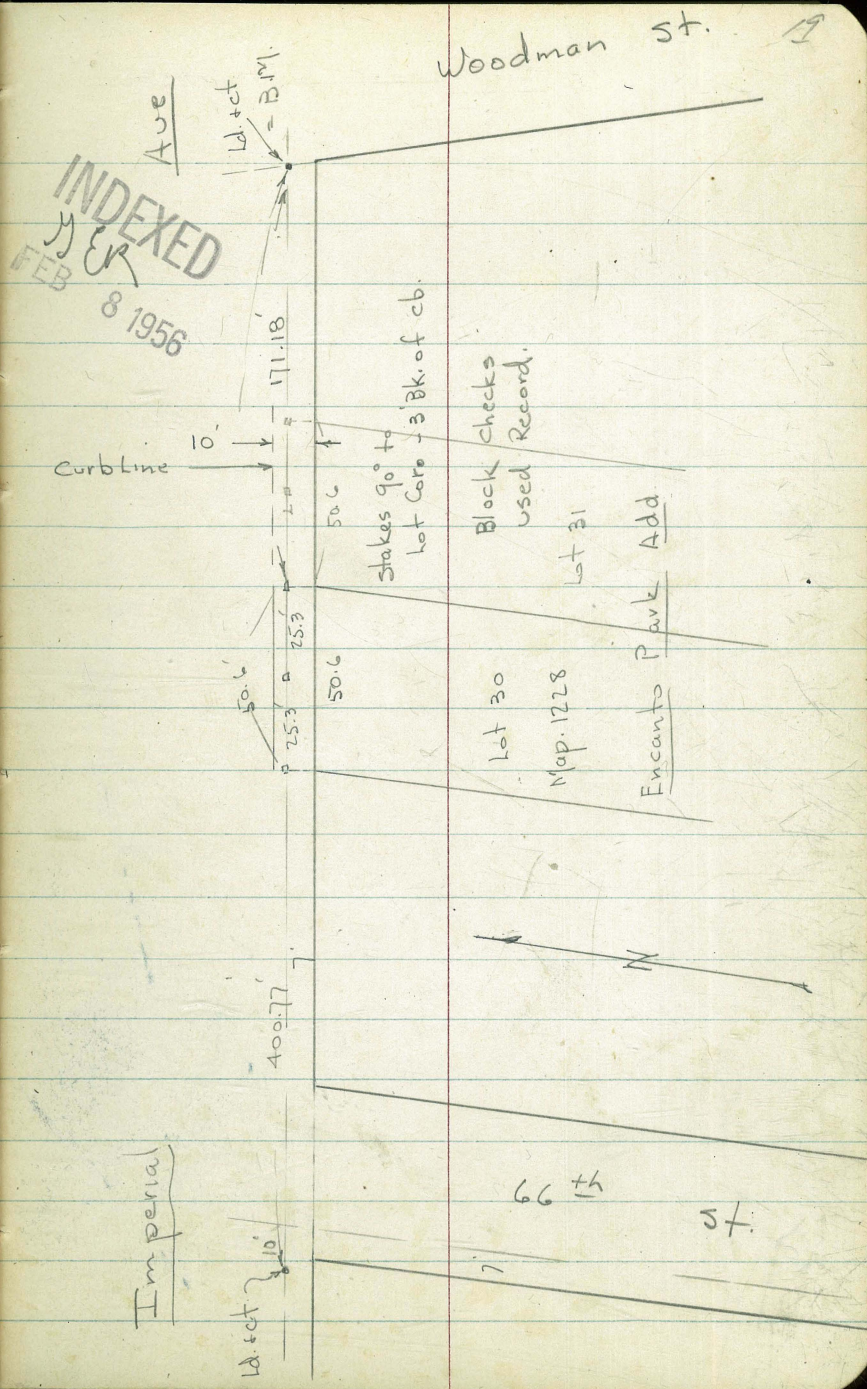 19
Woodman St.
Ave
Ld. + ct
= B.M.
INDEXED
FEB 8 1956
171.18'
10'
Curb Line
50.6
Stakes 90° to
Lot Cors - 3' Bk. of cb.
Block checks
used Record.
Lot 31
50.6'
25.3'
25.3'
50.6
Lot 30
Map. 1228
Encanto Park Add.
N
400.77'
7'
Imperial
66th
St.
Ld. + ct
10'
7'